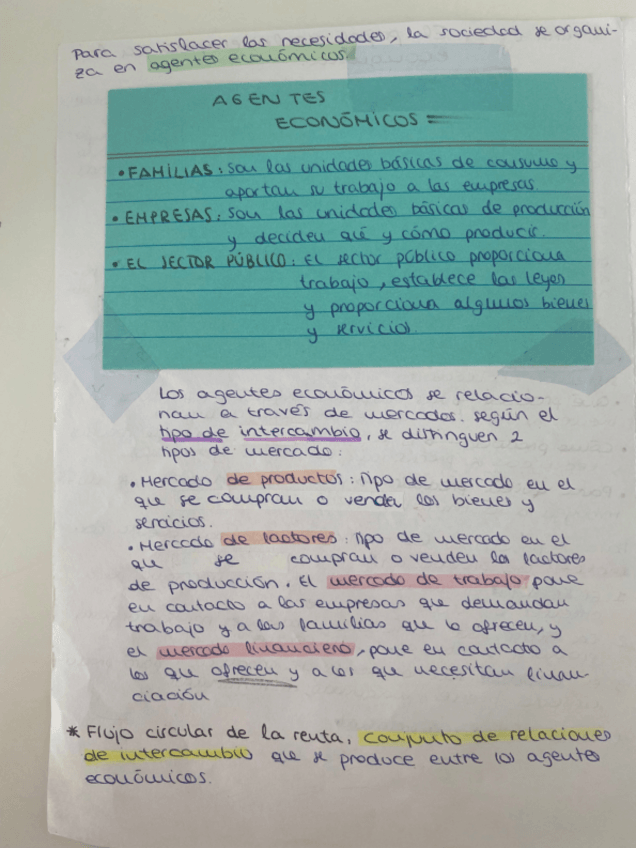 Para satisfacer las necesidades, la sociedad se organi-
za en agentes económicos.
AGENTES
ECONÓMICOS
• FAMILIAS: Son las unidades básicas de consumo y
aportan su trabajo a las empresas.
• EMPRESAS: Son las unidades básicas de producción
y deciden qué y cómo producir.
• EL SECTOR PÚBLICO: El sector público proporciona
trabajo, establece las leyes
y proporciona algunos bienes
y servicios.
Los agentes económicos se relacio-
nan a través de mercados. según el
tipo de intercambio, se distinguen 2
tipos de mercado:
• Mercado de productos: tipo de mercado en el
que se compran o venden los bienes y
servicios.
• Mercado de factores: tipo de mercado en el
que se compran o venden la factores
de producción. El mercado de trabajo pone
en contacto a las empresas que demandan
trabajo y a las familias que lo ofrecen, y
el mercado financiero, pone en contacto a
los que ofrecen y a los que necesitan finan-
ciación
* Flujo circular de la renta, conjunto de relaciones
de intercambio que se produce entre los agentes
económicos.